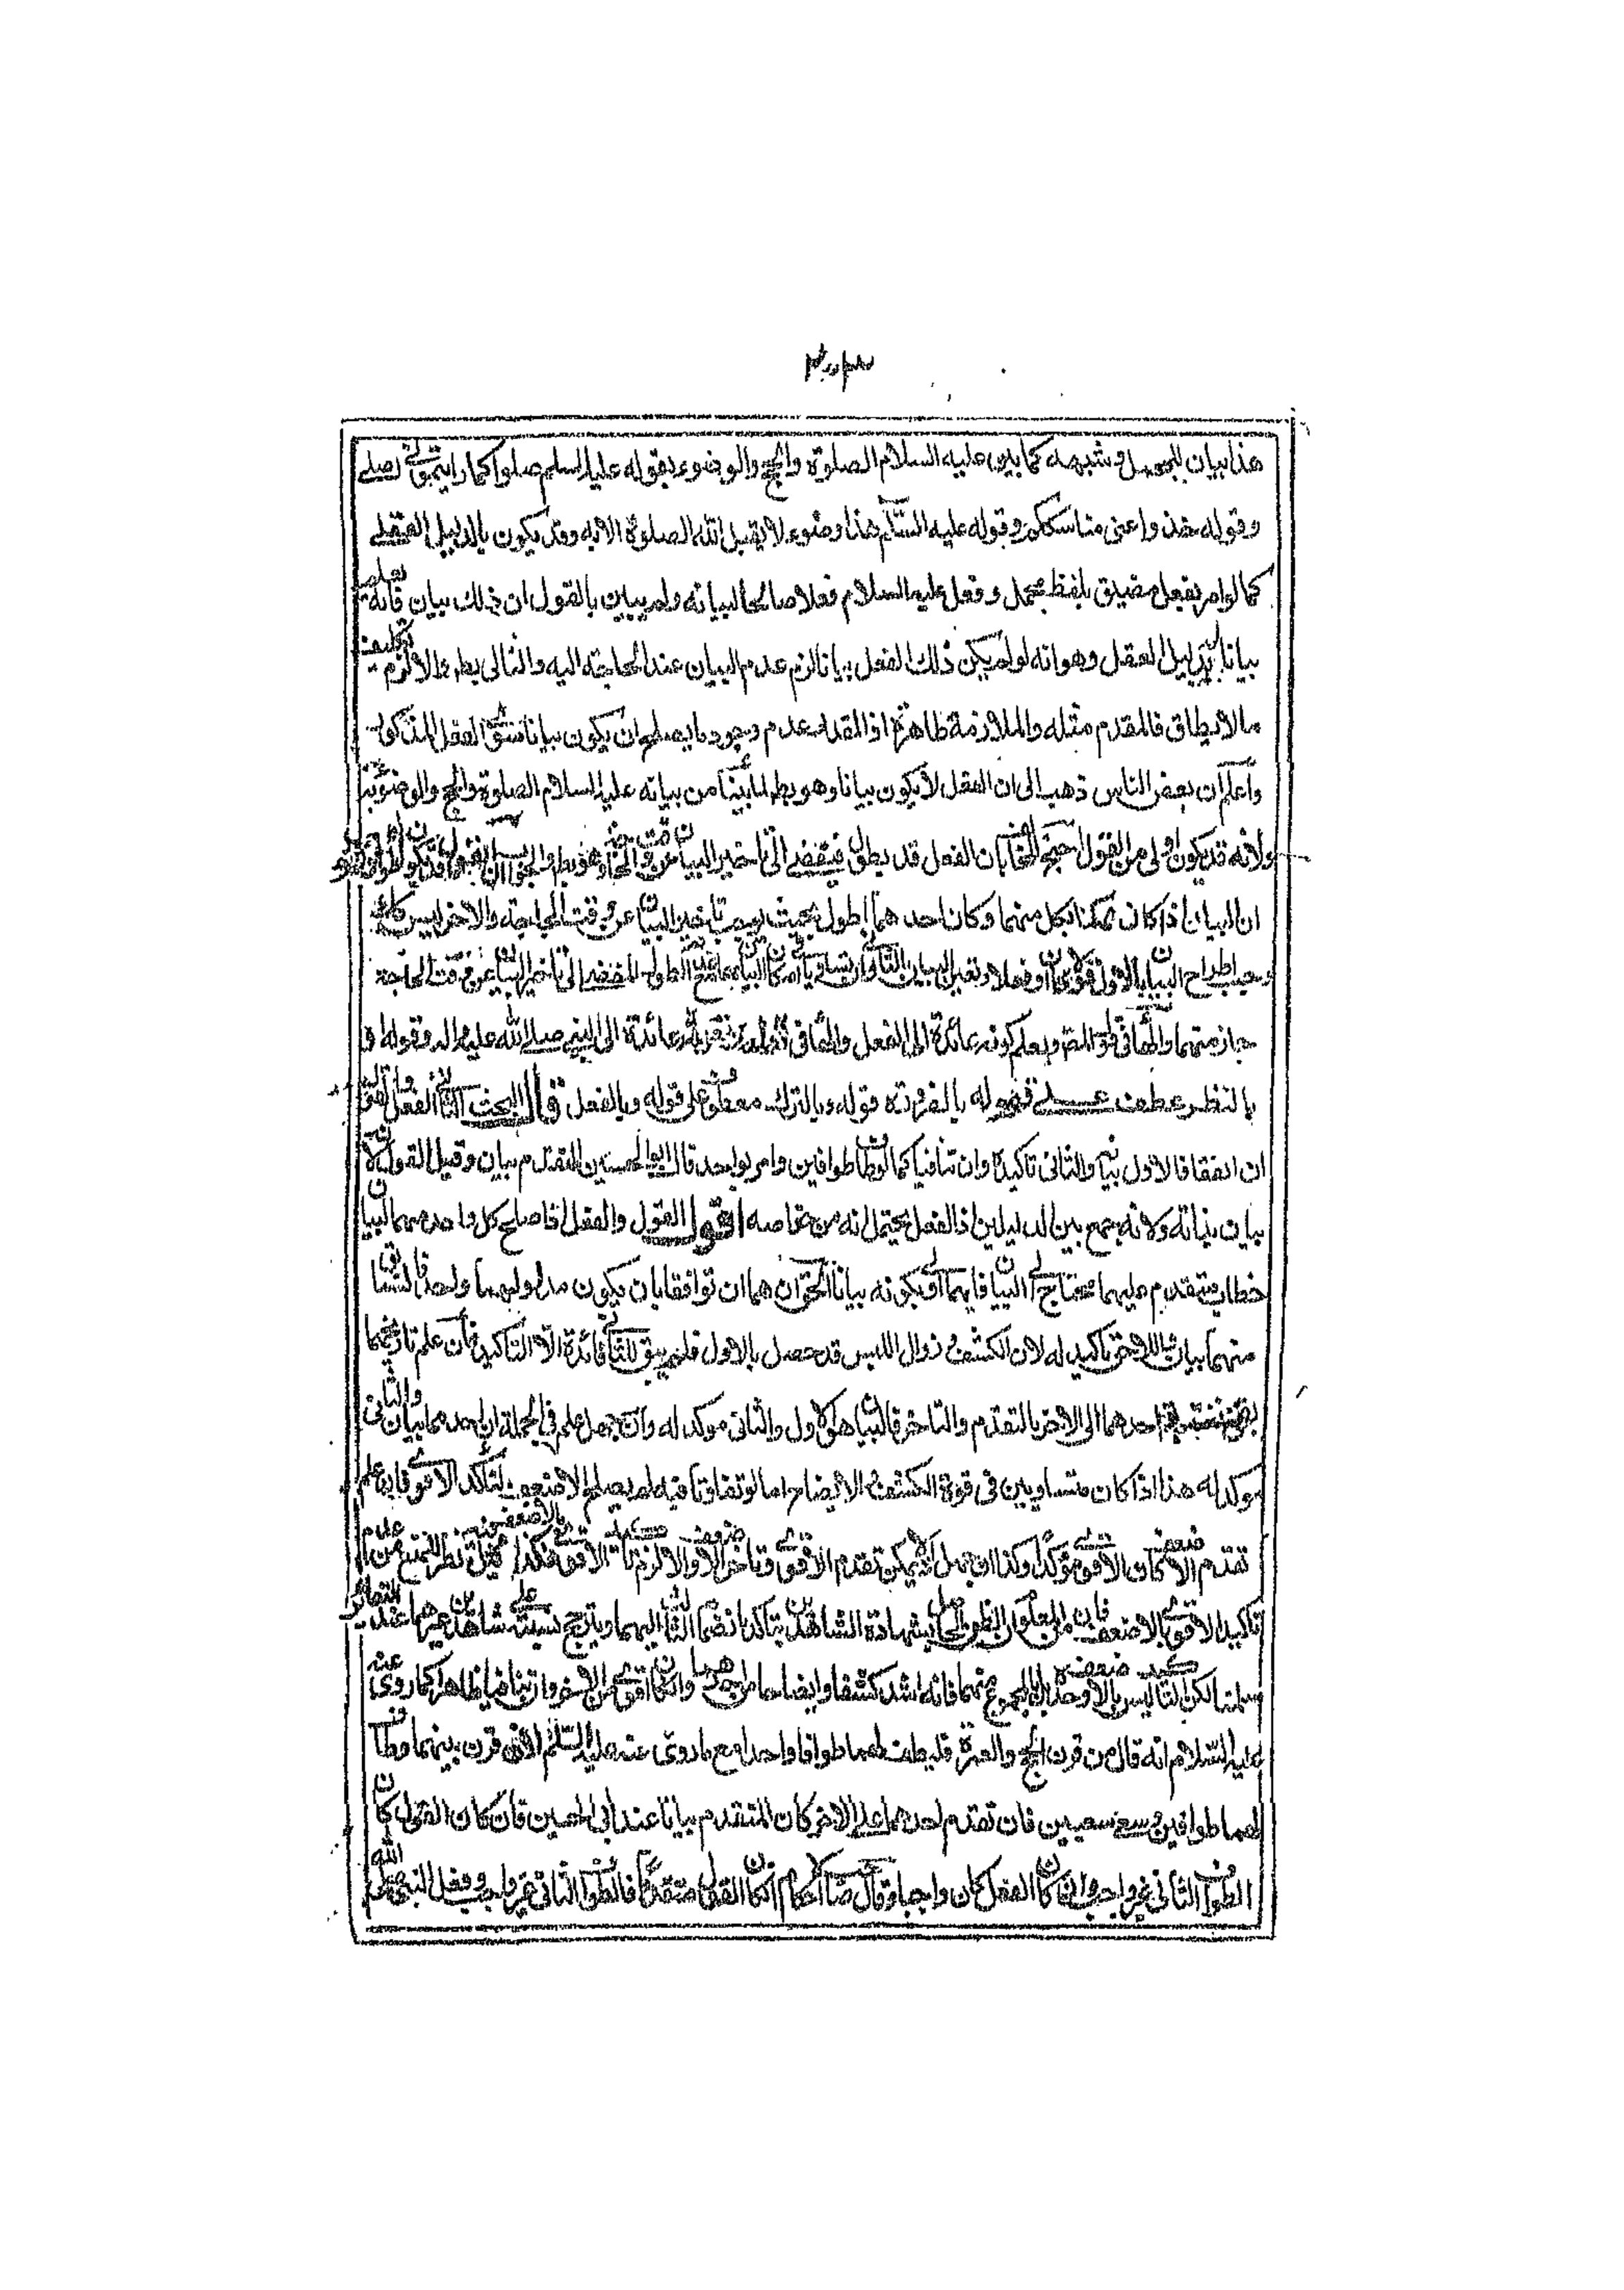 هذا بيان للمجمل وشبهه كما بين عليه السلام الصلوة والحج والوضوء بقوله عليه السلم صلوا كما رايتموني اصلي
وقوله خذوا عنى مناسككم وقوله عليه السّلم هذا وضوء لا يقبل الله الصلوة الا به وقد يكون بالدليل العقلى
كما لو امر بفعل مضيق بلفظ مجمل وفعل عليه السلام فعلا صالحا لبيانه ولم يبين بالقول ان ذلك بيان فانه يعلم
بيانا بدليل العقل وهو انه لو لم يكن ذلك الفعل بيانا لزم عدم البيان عند الحاجة اليه والتالى بط والا لزم تكليف
ما لا يطاق فالمقدم مثله والملازمة ظاهرة اذ المقدر عدم وجود ما يصلح ان يكون بيانا سوى الفعل المذكور
واعلم ان بعض الناس ذهب الى ان الفعل لا يكون بيانا وهو بط لما بينا من بيانه عليه السلام الصلوة والحج والوضوء به
ولانه قد يكون اولى من القول احتج المخالف بان الفعل قد يطول فيفضى الى تاخير البيان عن وقت الحاجة وهو بط والجواب ان القول
ان البيان اذا كان ممكنا بكل منهما وكان احدهما اطول بحيث يوجب تاخير البيان عن وقت الحاجة والاخر ليس كذلك
وجب اطراح البيان بالاول قولا كان او فعلا وتعين البيان بالثانى وان تساويا فى امكان البيان بهما مع الطول المفضى الى تاخير البيان عن وقت الحاجة
جاز منهما والهاء فى قوله ويعلم كونه عائدة الى الفعل والهاء فى عائدة الى النبي صلى الله عليه واله وقوله او
بالنظر عطف على قوله بالضرورة قوله وبالترك معطوف على قوله وبالفعل قال البحث الثانى الفعل والقول
ان اتفقا فالاول بيان والثانى تاكيد وان تنافيا كما لو طاف طوافين وامر بواحد قال ابو الحسين المتقدم بيان وقيل القول لانه
بيان بذاته ولانه جمع بين الدليلين اذ الفعل يحتمل انه من خواصه اقول القول والفعل اذا صلح كل واحد منهما لبيان
خطاب متقدم عليهما محتاج الى البيان فايهما اولى بكونه بيانا الحق ان هما ان توافقا بان يكون مدلولهما واحدا فالسابق
منهما بيان والاخر تاكيد له لان الكشف وزوال اللبس قد حصل بالاول فلم يبق للثانى فائدة الا التاكيد فان علم تاريخهما
احدهما الى الاخر بالتقدم والتاخر فالبيان هو الاول والثانى موكد له وان جهل علم فى الجملة ان احدهما بيان والثانى
موكد له هذا اذا كان متساويين فى قوة الكشف والايضاح اما لو تفاوتا فيه لم يصلح الاضعف لتاكيد الاقوى فان علم
تقدم الاضعف كان الاقوى موكدا وكذا ان جهل لانه لا يمكن تقدم الاقوى وتاخر الاضعف والا لزم تاكيد الاقوى بالاضعف هكذا قيل وفيه نظر للمنع من عدم
تاكيد الاقوى بالاضعف فان من المعلوم ان الظن الحاصل بشهادة الشاهدين يتاكد بانضمام الثالث اليهما ويترجح بينة على شاهدين غيرهما عند التعارض
سلمنا لكن التاكيد ليس بالاضعف وحده بل بالمجموع منهما فانه اشد كشفا وايضاحا من احدهما وان كان اقوى من الاخر وان تنافيا ظاهرا كما روى عنه
عليه السّلام انه قال من قرن الحج والعمرة فليطف لهما طوافا واحدا مع ما روى عنه عليه السّلم انه قرن بينهما وطاف
لهما طوافين وسعى سعيين فان تقدم احدهما على الاخر كان المتقدم بيانا عند ابى الحسين فان كان القول كان
الطواف الثانى غير واجب وان كان الفعل كان واجبا وقال صاحب الاحكام ان كان القول متقدما فالطواف الثانى غير واجب وفعل النبي صلى الله